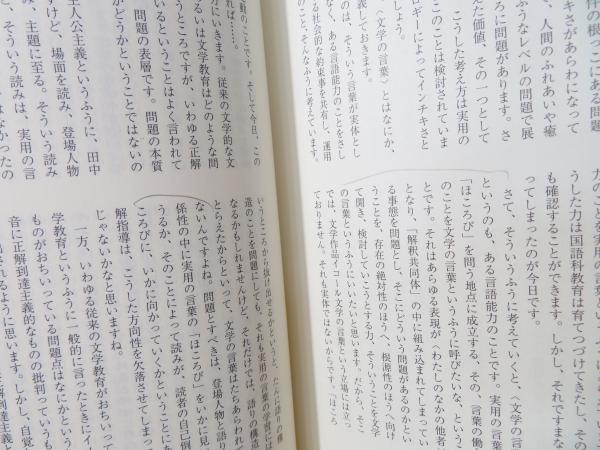 体の根っこにある問題
キさがあらわになって
、人間のふれあいや癒
ふうなレベルの問題で展
ろに問題があります。さ
えた価値、その一つとして
こうした考え方は実用の
ロギーによってインチキさと
のことは検討されています
しょう。
〈文学の言葉〉とはなにか、
義しておきます。
のは、そういう言葉が実体とし
なく、ある言語能力のことをさし
る社会的な約束事を共有し、運用
のこと、そんなふうに考えています。
力のことを実用の言葉
うした力は国語科教育は育てつづけてきたし、その
も確認することができます。しかし、それですまな
ってしまったのが今日です。
さて、そういうふうに考えていくと、〈文学の言
というのも、ある言語能力のことです。実用の言
「ほころび」を問う地点に成立する、その、言葉の働
のことを文学の言葉というふうに呼びたいな、というこ
とです。それはあらゆる表現が〈わたしのなかの他者
となり、「解釈共同体」の中に組み込まれてしまってい
る事態を問題とし、そこにどういう問題があるのかとい
うことを、存在の絶対性のほうへ、根源性のほうへ向け
て開き、検討してのこうとする力、そういうことを文学
の言葉というふうにいいたいと思います。だから、そこ
では、文学作品イコール文学の言葉という立場には立っ
ておりません。それも実体ではないからです。「ほころ
動のことです。そして今日、この
れば……。
分にいきます。従来の文学的な文
るいは文学教育はどのような問
うところですが、いわゆる正解
いるということはよく言われて
問題の表層です。問題の本質
がどうかということではないの
主人公主義というふうに、田中
すけど、場面を読み、登場人物
み、主題に至る。そういう読み
、そういう読みは、実用の言
はなかったの
いうところから抜け出せるかというと、たんに語りの構
造のことを問題にしても、それも実用の言葉の学習には
なるかもしれませんけど、それだけでは、語りの構造
とらえたからといって、文学の言葉はたちあらわれて
ないんですよね。問題とすべきは、登場人物と語り
係性の中に実用の言葉の「ほころび」をいかに見
うるか、そのことによって読みが、読者の自己倒
ころがに、いかに向かっていくかということに
解指導は、こうした方向性を欠落させてしまっ
じゃないかなと思いますね。
一方、いわゆる従来の文学教育がおちいって
学教育というふうに一般的に言ったときにイ
ものがおちいっている問題点はなにかという
音に正解到達主義的なものの批判っていうも
されるように思います。しかし、自覚